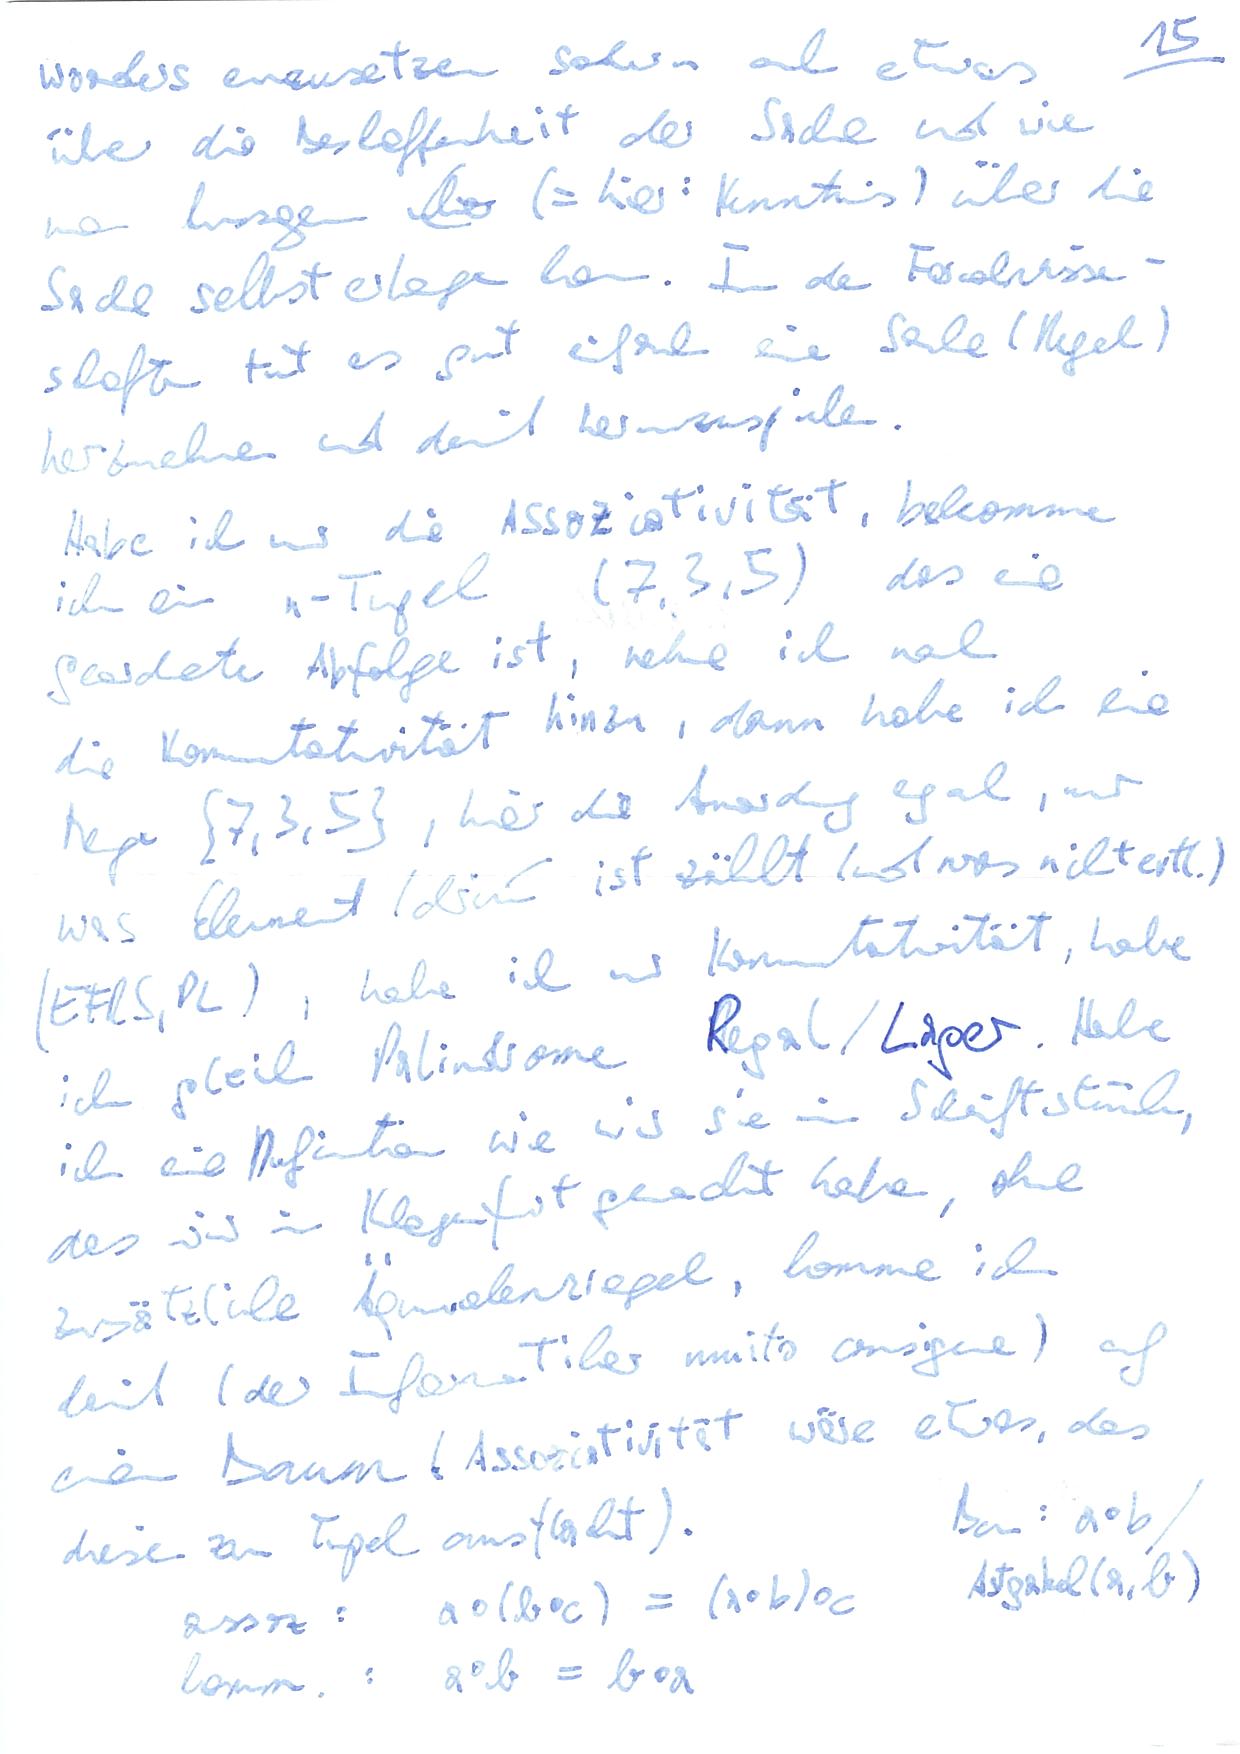 15
woanders einzusetzen sondern auch etwas
über die Beschaffenheit der Sache und wie
man Aussagen (= hier: Kenntnis) über die
Sache selbst erlangen kann. In den Formalwissen-
schaften tut es gut einfach eine Sache (Regel)
herzunehmen und damit herumzuspielen.
Habe ich nur die Assoziativität, bekomme
ich ein n-Tupel (7,3,5) das eine
geordnete Abfolge ist, nehme ich noch
die Kommutativität hinzu, dann habe ich eine
Menge {7,3,5}, hier die Anordnung egal, nur
was Element (drin) ist zählt (und was nicht enth.)
(EFRS, PL), habe ich nur Kommutativität, habe
ich gleich Palindrome Regal/Lager. Habe
ich eine Definition wie wir sie im Schriftstück,
das wir in Klagenfurt gemacht haben, ohne
zusätzliche Äquivalenzregel, komme ich
damit (der Informatiker muito consigne) auf
einen Baum (Assoziativität wäre etwas, das
diesen zum Tupel ausflacht).
Baum: a∘b/
Astgabel(a,b)
assoz: a∘(b∘c) = (a∘b)∘c
komm.: a∘b = b∘a